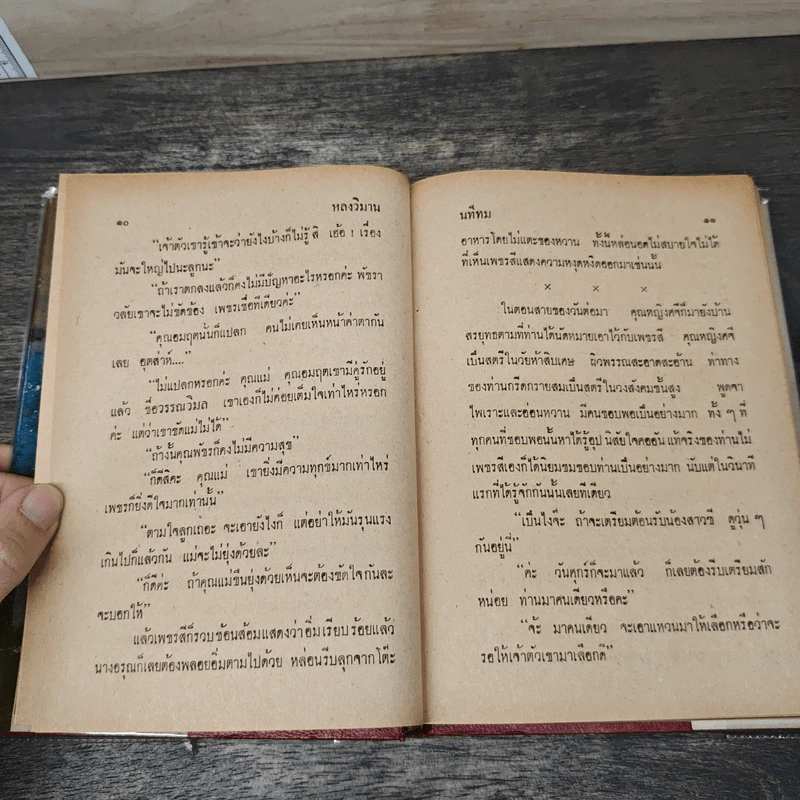 ๑๐ หลงวิมาน
“เจ้าตัวเขารู้เข้าจะว่ายังไงบ้างก็ไม่รู้ สิ เฮ้อ ! เรื่อง
มันจะใหญ่ไปนะลูกนะ”
“ถ้าเราตกลงแล้วก็คงไม่มีปัญหาอะไรหรอกค่ะ พัชรา
วลัยเขาจะไม่ขัดข้อง เพชรเชื่อทีเดียวค่ะ”
“คุณอมฤตนั่นก็แปลก คนไม่เคยเห็นหน้าค่าตากัน
เลย อุตส่าห์....”
“ไม่แปลกหรอกค่ะ คุณแม่ คุณอมฤตเขามีคู่รักอยู่
แล้ว ชื่อวรรณวิมล เขาเองก็ไม่ค่อยเต็มใจเท่าไหร่หรอก
ค่ะ แต่ว่าเขาขัดแม่ไม่ได้”
“ถ้างั้นคุณพัชรก็คงไม่มีความสุข”
“ก็ดีสิคะ คุณแม่ เขายิ่งมีความทุกข์มากเท่าไหร่
เพชรก็ยิ่งดีใจมากเท่านั้น”
“ตามใจลูกเถอะ จะเอายังไงก็ แต่อย่าให้มันรุนแรง
เกินไปก็แล้วกัน แม่จะไม่ยุ่งด้วยล่ะ”
“ก็ดีค่ะ ถ้าคุณแม่ขืนยุ่งด้วยเห็นจะต้องขัดใจกันละ
จะบอกให้”
แล้วเพชรสีก็รวบช้อนส้อมแสดงว่าอิ่มเรียบร้อยแล้ว
นางอรุณก็เลยต้องพลอยอิ่มตามไปด้วย หล่อนรีบลุกจากโต๊ะ
นทีทม ๑๑
อาหารโดยไม่แตะของหวาน ทั้งนี้หล่อนอดไม่สบายใจไม่ได้
ที่เห็นเพชรสีแสดงความหงุดหงิดออกมาเช่นนั้น
× × ×
ในตอนสายของวันต่อมา คุณหญิงศจีก็มายังบ้าน
สรยุทธตามที่ท่านได้นัดหมายเอาไว้กับเพชรสี คุณหญิงศจี
เป็นสตรีในวัยห้าสิบเศษ ผิวพรรณสะอาดสะอ้าน ท่าทาง
ของท่านกรีดกรายสมเป็นสตรีในวงสังคมชั้นสูง พูดจา
ไพเราะและอ่อนหวาน มีคนชอบพอเป็นอย่างมาก ทั้ง ๆ ที่
ทุกคนที่ชอบพอนั้นหาได้รู้อุปนิสัยใจคออันแท้จริงของท่านไม่
เพชรสีเองก็ได้นิยมชมชอบท่านเป็นอย่างมาก นับแต่ในวินาที
แรกที่ได้รู้จักกันนั้นเลยทีเดียว
“เป็นไงจ๊ะ ถ้าจะเตรียมต้อนรับน้องสาวซี ดูวุ่น ๆ
กันอยู่นี่”
“ค่ะ วันศุกร์ก็จะมาแล้ว ก็เลยต้องรีบเตรียมสัก
หน่อย ท่านมาคนเดียวหรือคะ”
“จ้ะ มาคนเดียว จะเอาแหวนมาให้เลือกหรือว่าจะ
รอให้เจ้าตัวเขามาเลือกดี”